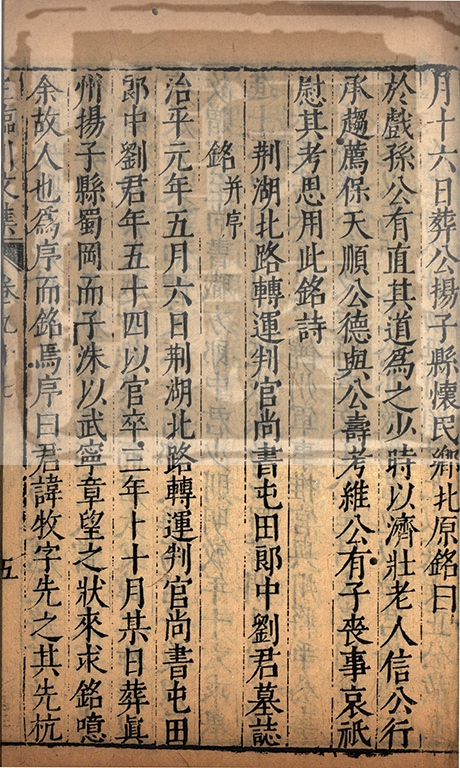 月十六日葬公揚子縣懷民鄉北原銘曰
於戲孫公有直其道爲之少時以濟壯老人信公行
承趨薦保天順公德與公壽考維公有子喪事哀祇
慰其考思用此銘詩
荆湖北路轉運判官尚書屯田郎中劉君墓誌
銘并序
治平元年五月六日荆湖北路轉運判官尚書屯田
郎中劉君年五十四以官卒三年卜十月某日葬眞
州揚子縣蜀岡而子洙以武寧章望之狀來求銘噫
余故人也爲序而銘焉序曰君諱牧字先之其先杭
王臨川文集 卷九十七 五